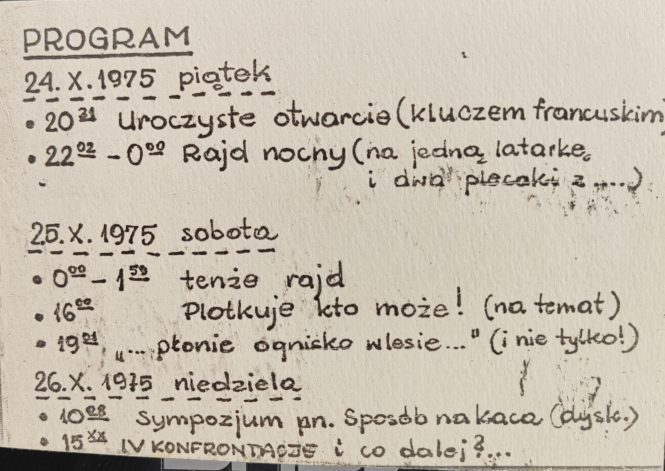 PROGRAM
24.X.1975 piątek
• 20²¹ Uroczyste otwarcie (kluczem francuskim
• 22⁰² – 0⁰⁰ Rajd nocny (na jedną latarkę
i dwa plecaki z .....)
25.X.1975 sobota
• 0⁰⁰ – 1⁵⁹ tenże rajd
• 16⁰⁰ Plotkuje kto może! (na temat)
• 19²¹ „... płonie ognisko w lesie..." (i nie tylko!)
26.X.1975 niedziela
• 10⁰⁸ Sympozjum pn. Sposób na kaca (dysk.)
• 15ˣˣ IV KONFRONTACJE i co dalej?...